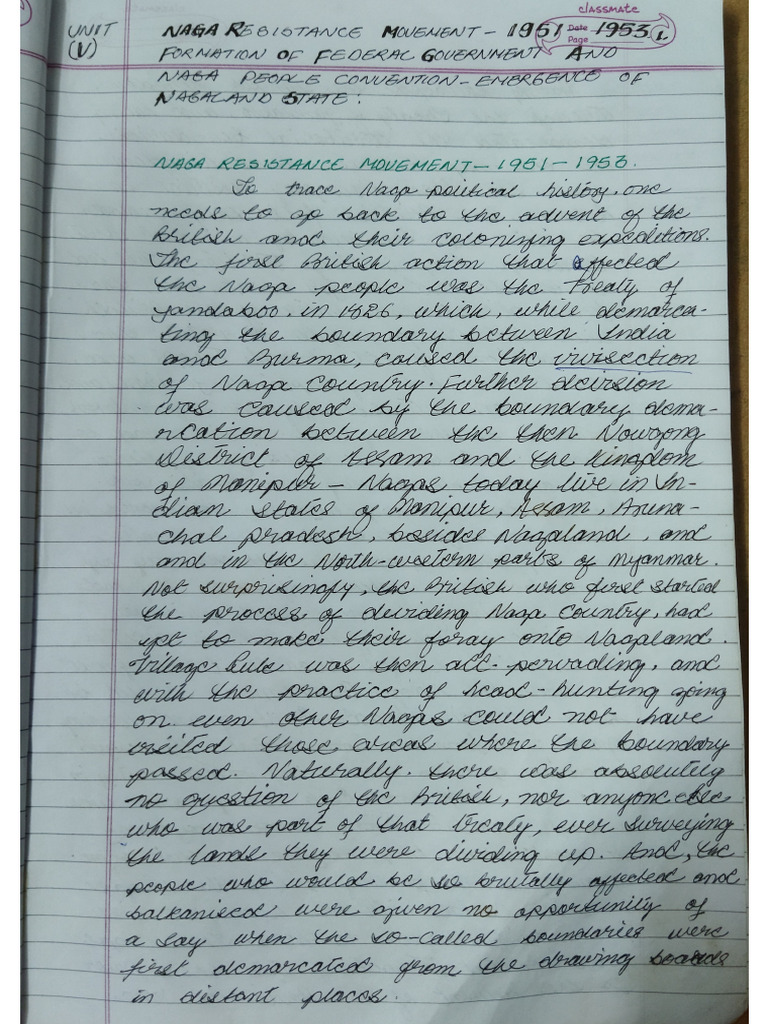 classmate
Date
Page 1.
UNIT
(V)
NAGA RESISTANCE MOVEMENT - 1951 - 1953
FORMATION OF FEDERAL GOVERNMENT AND
NAGA PEOPLE CONVENTION - EMERGENCE OF
NAGALAND STATE :
NAGA RESISTANCE MOVEMENT - 1951 - 1953.
To trace Naga political history, one
needs to go back to the advent of the
British and their colonizing expeditions.
The first British action that affected
the Naga people was the Treaty of
Yandaboo, in 1826, which, while demarca-
ting the boundary between India
and Burma, caused the vivisection
of Naga Country. Further division
was caused by the boundary dema-
rcation between the then Nowgong
District of Assam and the Kingdom
of Manipur - Nagas today live in In-
dian states of Manipur, Assam, Aruna-
chal pradesh, besides Nagaland, and
and in the North-western parts of Myanmar.
Not surprisingly, the British who first started
the process of dividing Naga Country, had
yet to make their foray onto Nagaland.
Village rule was then all-pervading, and
with the practice of head-hunting going
on even other Nagas could not have
visited those areas where the boundary
passed. Naturally, there was absolutely
no question of the British, nor anyone else
who was part of that Treaty, ever surveying
the lands they were dividing up. And, the
people who would be so brutally affected and
balkanised were given no opportunity of
a say when the so-called boundaries were
first demarcated from the drawing boards
in distant places.